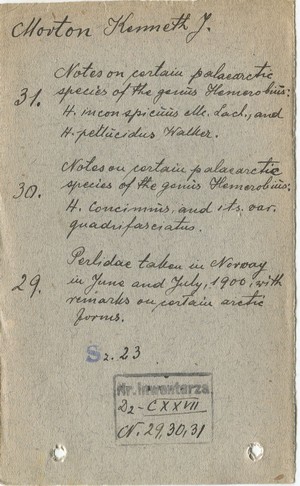 Morton Kenneth J.
31. Notes on certain palaearctic
species of the genus Hemerobius:
H. inconspicuus Mc. Lach., and
H. pellucidus Walker.
30. Notes on certain palaearctic
species of the genus Hemerobius:
H. concinnus, and its var.
quadrifasciatus.
29. Perlidae taken in Norway
in June and July, 1900, with
remarks on certain arctic
forms.
Sz. 23
Nr. Inwentarza
Dz-CXXVII
N. 29, 30, 31